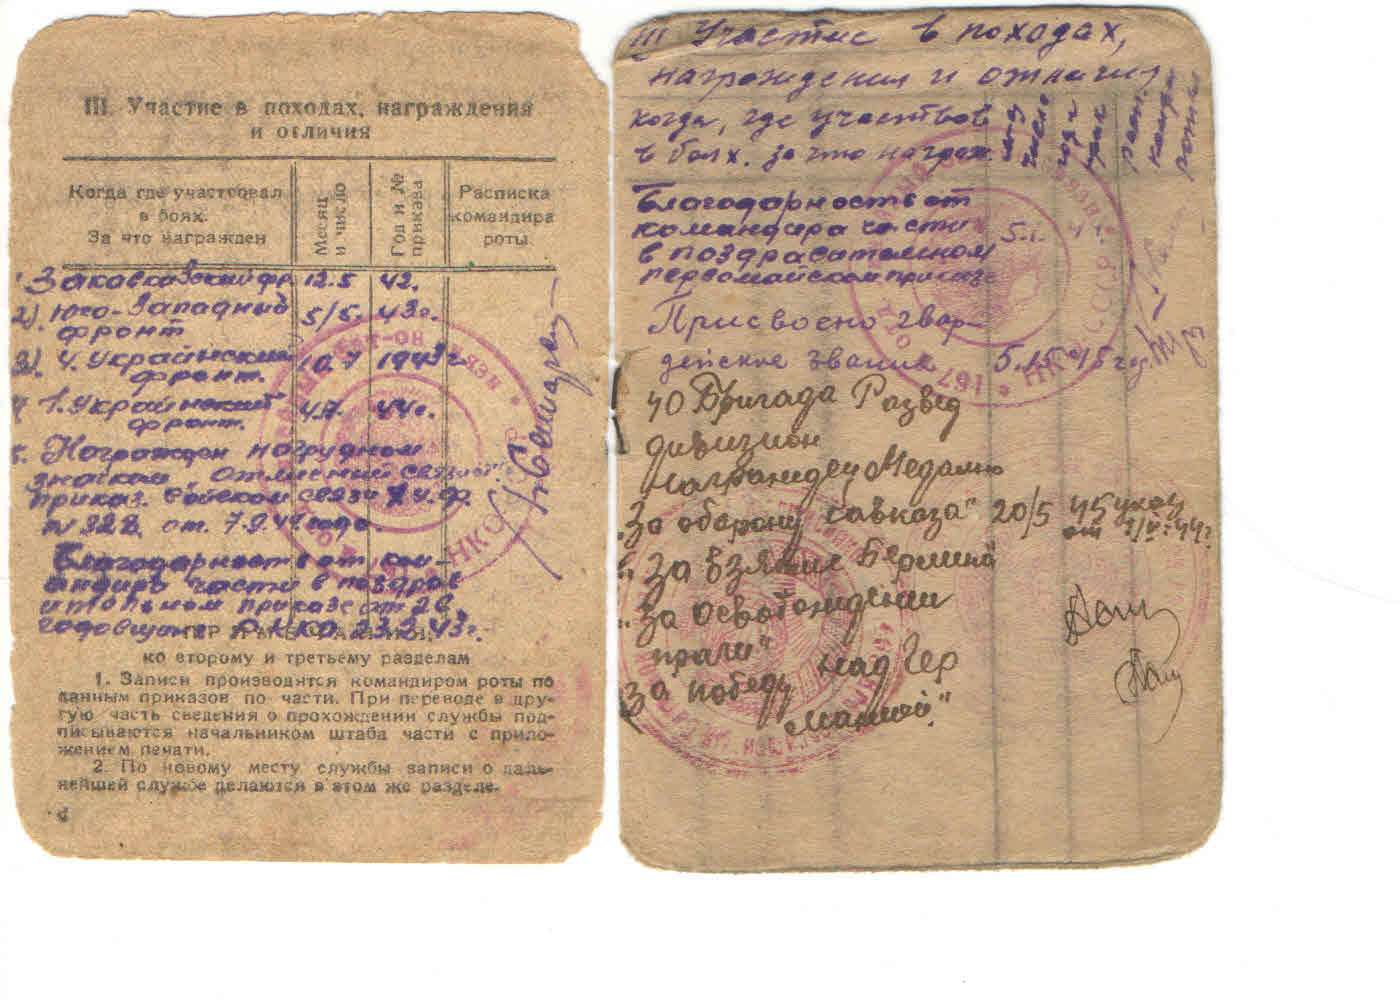 III. Участие в походах, награждения
и отличия
Когда где участвовал
в боях.
За что награжден
Месяц
и число
Год и №
приказа
Расписка
командира
роты
1. Закавказский фр. 12.5 42.
2). Юго-Западный
фронт 5/5. 43г.
3) 4. Украинский 10.7 1943г
фронт.
4 1. Украинский
фронт. 4.7. 44г.
5. Награжден нагрудном
значком, отличний связист
приказ. войском связи 4 у.ф.
N 328. от. 7.9.44 года.
Благодарность от ком-
андира части в поздрав
ительном приказе от 26
годовщине РККА 23.2.43г.
ко второму и третьему разделам
1. Записи производятся командиром роты по
данным приказов по части. При переводе в дру-
гую часть сведения о прохождении службы под-
писываются начальником штаба части с прило-
жением печати.
2. По новому месту службы записи о даль-
нейшей службе делаются в этом же разделе.
III Участие в походах,
награждения и отличия
когда, где участвов
в боях. за что награж.
м-ц
число
год и
прик
расп.
комдр
роты
Благодарность от
командира части
в поздравательном
первомайском приказе
5.1.
Присвоено гвар-
дейское звание 5.15.45 год
40 Бригада Развед
дивизион
награжден Медалью
"За оборону Кавказа" 20/5 45 указ
от 1/V.44г.
"За взятие Берлина"
"За освобождении
праги"
"За победу над Гер
манией."